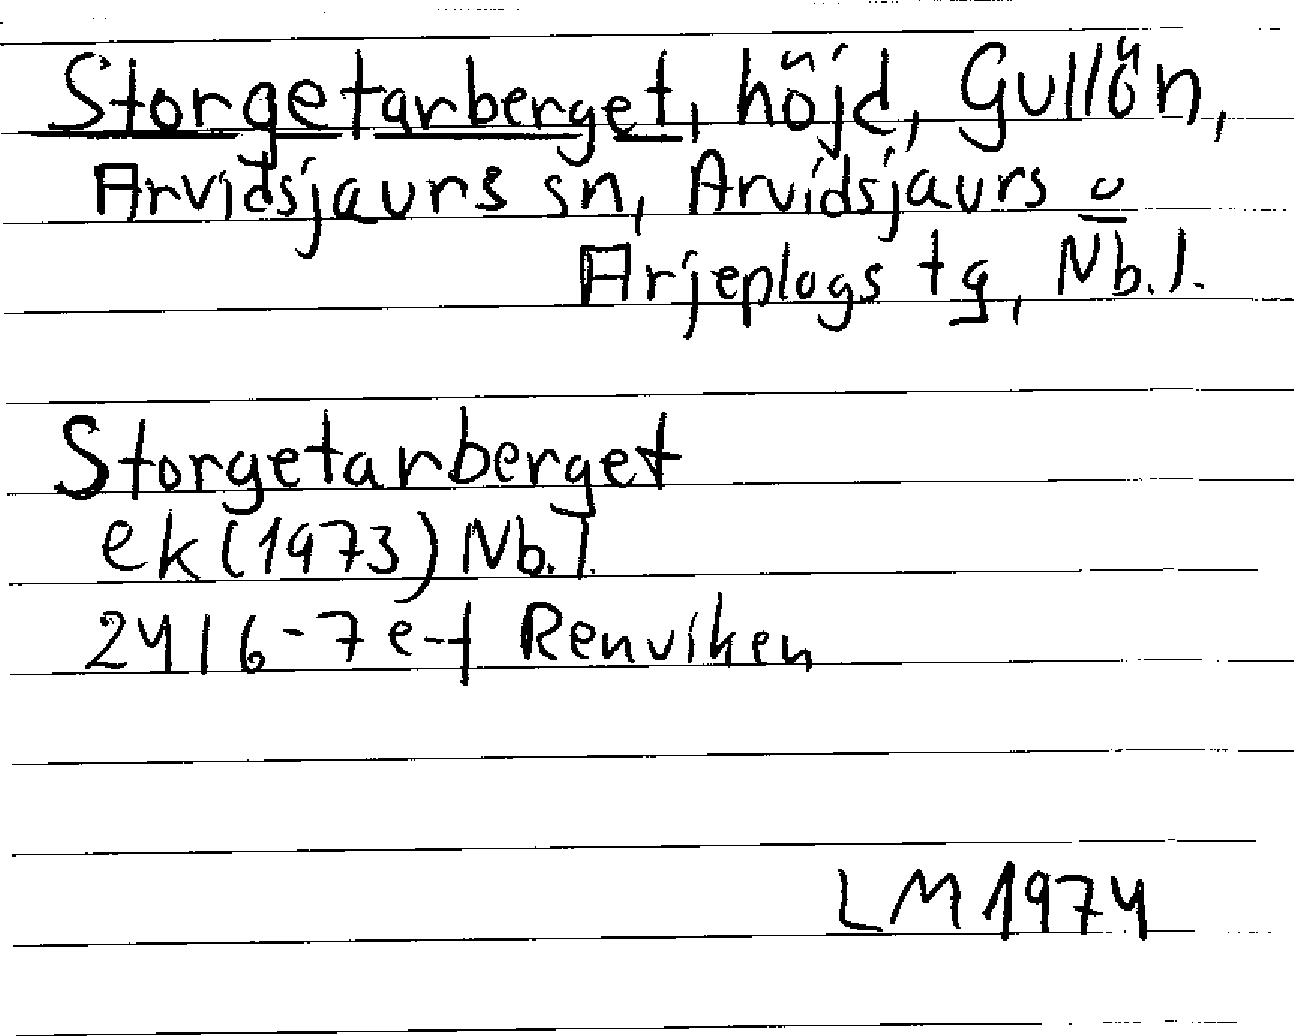 Storgetarberget, höjd, Gullön,
Arvidsjaurs sn, Arvidsjaurs o
Arjeplogs tg, Nb.l.
Storgetarberget
ek (1973) Nb.l.
2416-7 e-f Renviken
LM 1974